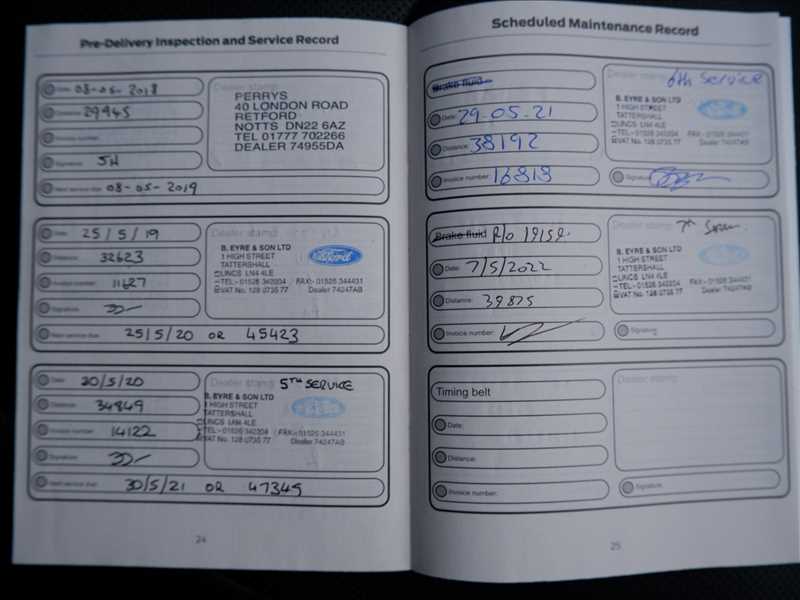 Pre-Delivery Inspection and Service Record
Date: 08-05-2018
Distance: 29945
Invoice number:
Signature: JH
Next service due: 08-05-2019
Dealer stamp
PERRYS
40 LONDON ROAD
RETFORD
NOTTS DN22 6AZ
TEL 01777 702266
DEALER 74955DA
Date: 25/5/19
Distance: 32623
Invoice number: 11627
Signature:
Next service due: 25/5/20 OR 45423
B. EYRE & SON LTD
1 HIGH STREET
TATTERSHALL
LINCS LN4 4LE
TEL - 01526 342204 FAX: - 01526 344431
VAT No. 128 0735 77 Dealer 74247AB
Ford
Date: 20/5/20
Distance: 34849
Invoice number: 14122
Signature:
Next service due: 30/5/21 OR 47349
Dealer stamp 5TH SERVICE
B. EYRE & SON LTD
1 HIGH STREET
TATTERSHALL
LINCS LN4 4LE
TEL - 01526 342204 FAX: - 01526 344431
VAT No. 128 0735 77 Dealer 74247AB
24
Scheduled Maintenance Record
Brake fluid
Date: 29.05.21
Distance: 38192
Invoice number: 16818
Dealer stamp 6th Service
B. EYRE & SON LTD
1 HIGH STREET
TATTERSHALL
LINCS LN4 4LE
TEL - 01526 342204 FAX: - 01526 344431
VAT No. 128 0735 77 Dealer 74247AB
Signature:
Brake fluid R/O 19159.
Date: 7/5/2022
Distance: 39875
Invoice number:
Dealer stamp 7th
B. EYRE & SON LTD
1 HIGH STREET
TATTERSHALL
LINCS LN4 4LE
TEL - 01526 342204 FAX: - 01526 344431
VAT No. 128 0735 77 Dealer 74247AB
Signature:
Timing belt
Date:
Distance:
Invoice number:
Dealer stamp
Signature:
25